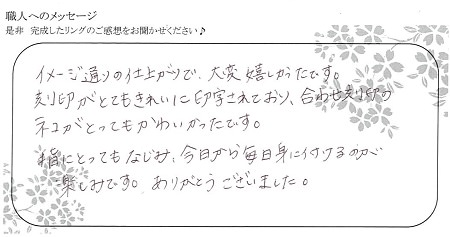 職人へのメッセージ
是非 完成したリングのご感想をお聞かせください♪
イメージ通りの仕上がりで、大変嬉しかったです。
刻印がとてもきれいに印字されており、合わせ刻印の
ネコがとってもかわいかったです。
指にとってもなじみ、今日から毎日身に付けるのが
楽しみです。ありがとうございました。